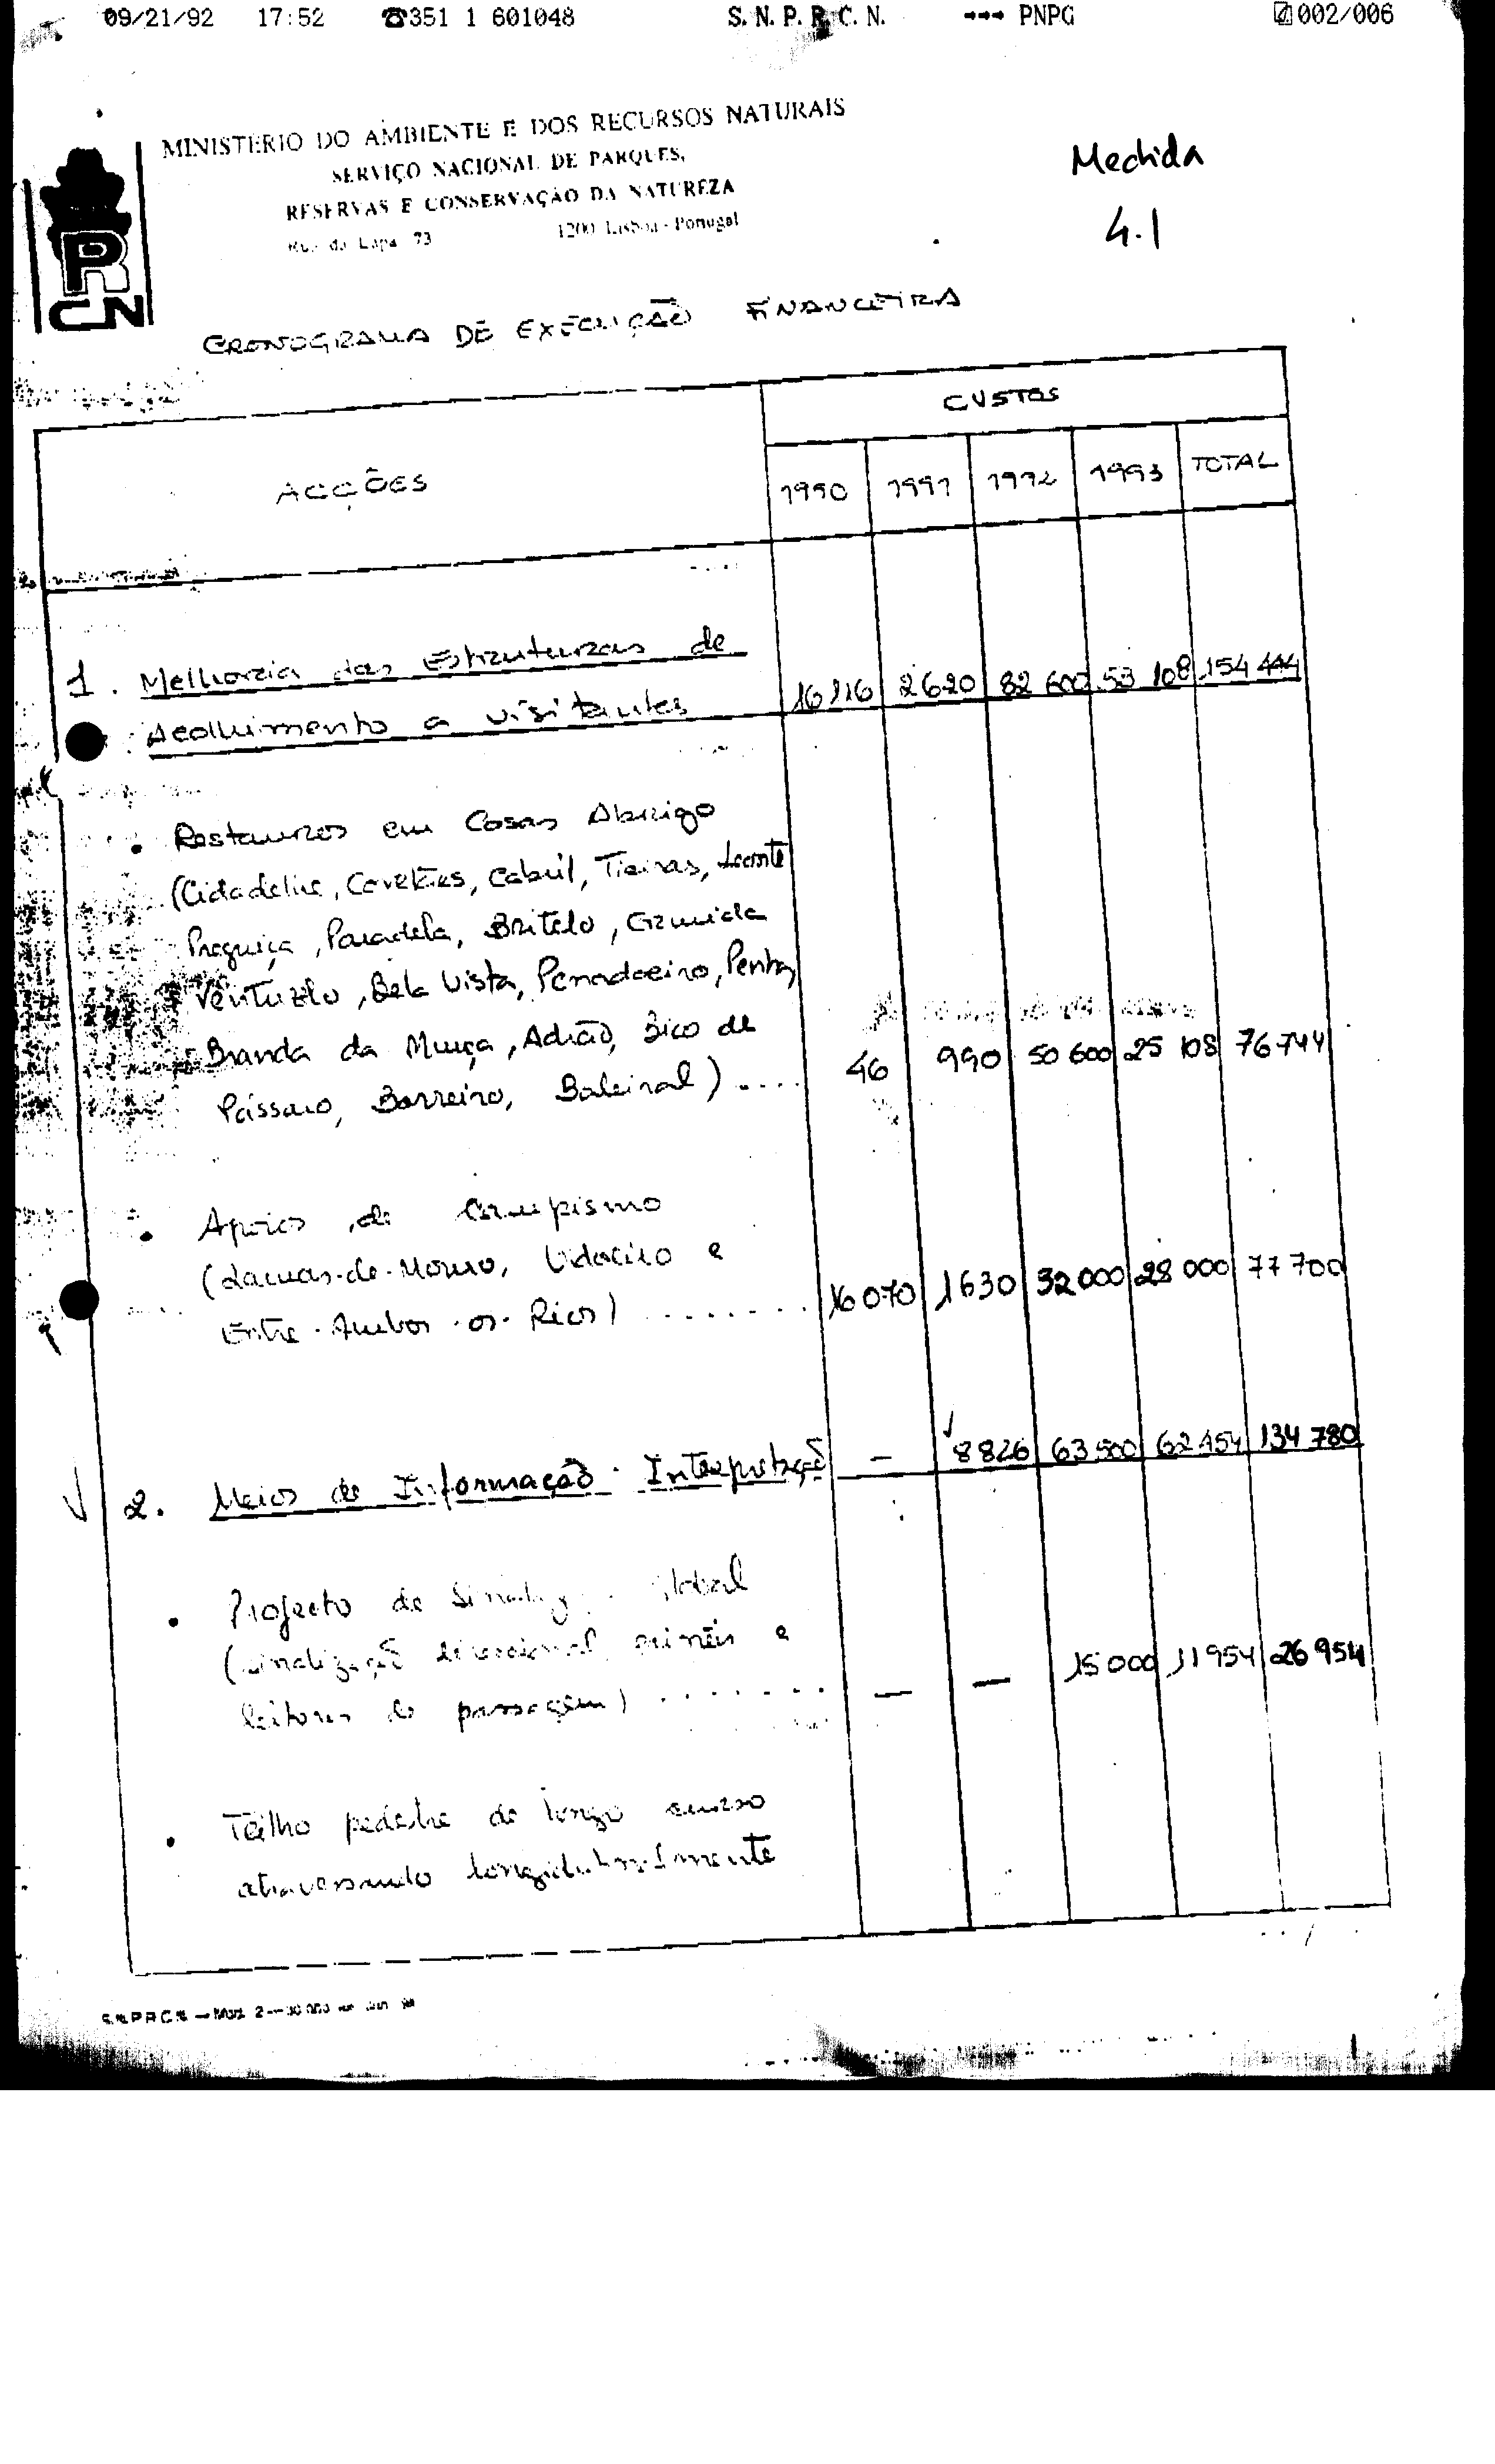 09/21/92 17:52 ☎351 1 601048 S. N. P. R. C. N. →→→ PNPG 002/006
MINISTÉRIO DO AMBIENTE E DOS RECURSOS NATURAIS
SERVIÇO NACIONAL DE PARQUES,
RESERVAS E CONSERVAÇÃO DA NATUREZA
Rua da Lapa 73 1200 Lisboa - Portugal
PRCN
Medida
4.1
CRONOGRAMA DE EXECUÇÃO FINANCEIRA
CUSTOS
ACÇÕES 1990 1991 1992 1993 TOTAL
1. Melhoria das Estruturas de
Acolhimento a visitantes 16116 2620 82 600 53 108 154 444
• Restauros em Casas Abrigo
(Cidadelhe, Covelães, Cabril, Tieiras,
Preguiça, Paradela, Britelo, Gramicela
Ventuzelo, Bela Vista, Penadoeiro,
Branda da Murça, Adrão, Bico de
Pássaro, Barreiro, Baleiral) .... 46 990 50 600 25 108 76 744
• Apoios de Campismo
(Lamas-de-Mouro, Vidoeiro e
Entre-Ambos-os-Rios) ........ 16 070 1630 32 000 28 000 77 700
2. Meios de Informação - Interpretação — 8826 63 500 62 454 134 780
• Projecto de Global
(sinalização direccional, painéis e
leitores de passagem) ....... — — 15 000 11954 26 954
• Trilho pedestre de longo curso
atravessando longitudinalmente
S.N.P.R.C.N. — Mod. 2